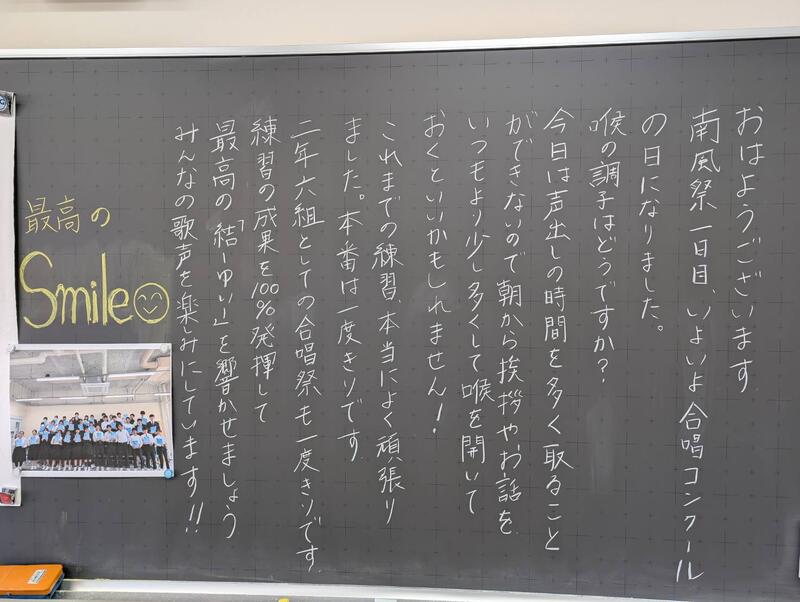 おはようございます
南風祭一日目、いよいよ合唱コンクール
の日になりました。
喉の調子はどうですか？
今日は声出しの時間を多く取ること
ができないので朝から挨拶や、お話を
いつもより少し多くして喉を開いて
おくといいかもしれません！
これまでの練習、本当によく頑張り
ました。本番は一度きりです
二年六組としての合唱祭も一度きりです
練習の成果を100%発揮して
最高の「結-ゆい-」を響かせましょう
みんなの歌声を楽しみにしています!!
最高の
Smile